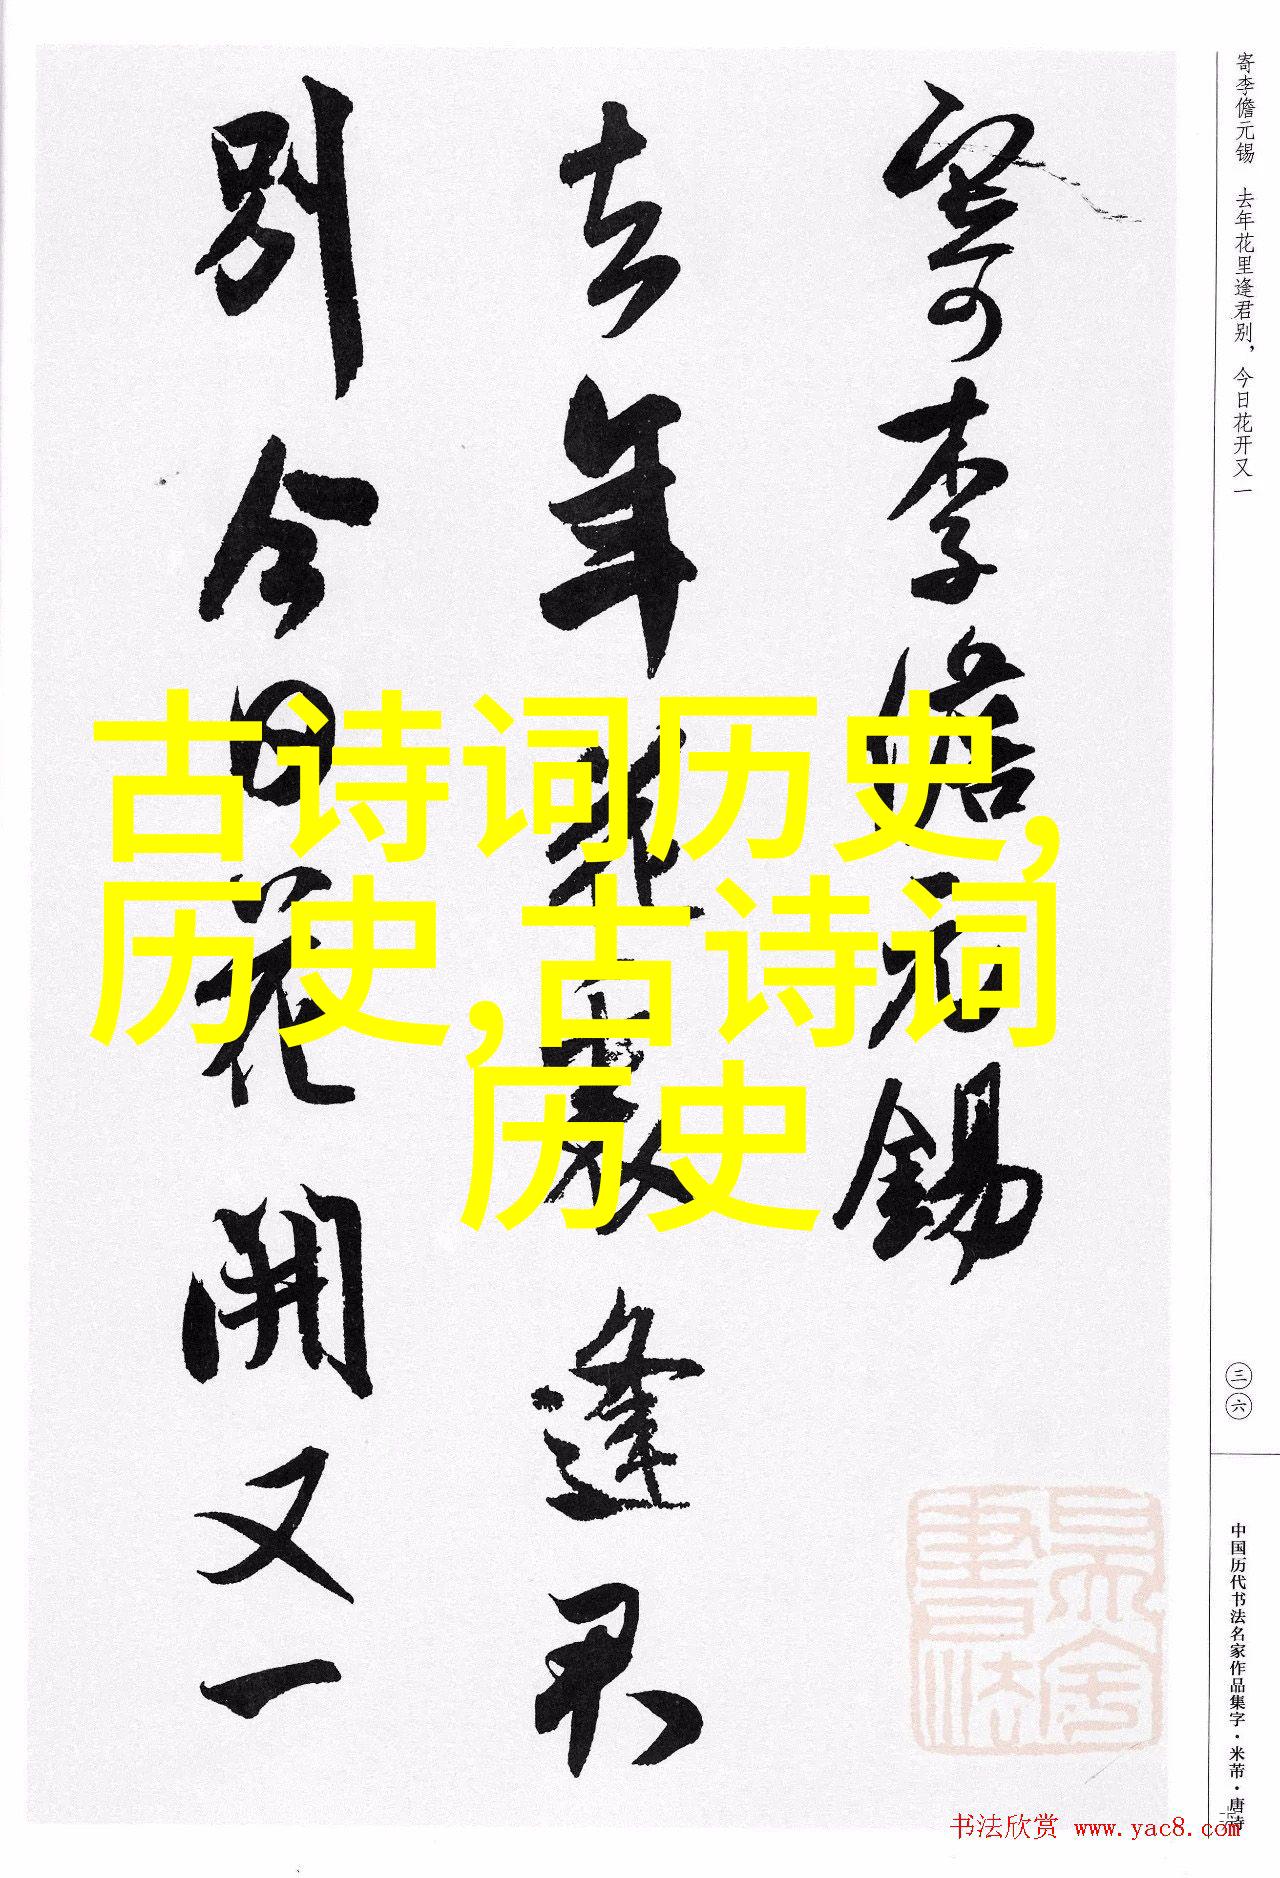 寄李儋元锡 去年花里逢君别，今日花开又一
寄李儋元錫
去年花里逢君
別今日花開又一
古诗词历史,
历史,古诗词
历史
三六
中国历代书法名家作品集字·米芾·唐诗
书法欣赏 www.yac8.com